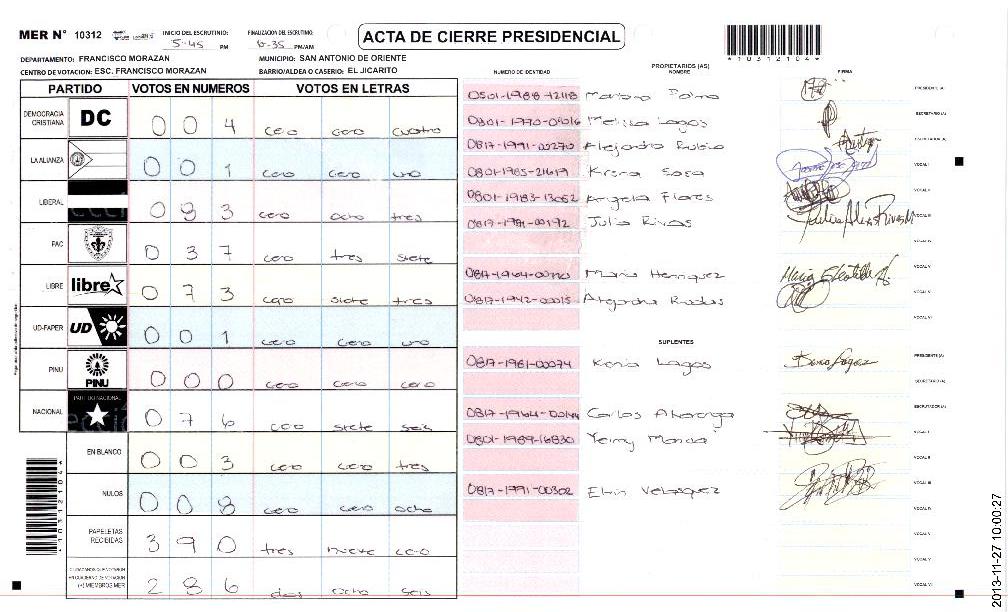 MER Nº 10312
INICIO DEL ESCRUTINIO: 5:45 PM
FINALIZACION DEL ESCRUTINIO: 6:35 PM/AM
ACTA DE CIERRE PRESIDENCIAL
*10312104*
DEPARTAMENTO: FRANCISCO MORAZAN
MUNICIPIO: SAN ANTONIO DE ORIENTE
CENTRO DE VOTACION: ESC. FRANCISCO MORAZAN
BARRIO/ALDEA O CASERIO: EL JICARITO
PARTIDO VOTOS EN NUMEROS VOTOS EN LETRAS
DEMOCRACIA CRISTIANA DC 0 0 4 cero cero cuatro
LA ALIANZA 0 0 1 cero cero uno
LIBERAL 0 8 3 cero ocho tres
PAC 0 3 7 cero tres siete
LIBRE libre 0 7 3 cero siete tres
UD-FAPER UD 0 0 1 cero cero uno
PINU PINU 0 0 0 cero cero cero
NACIONAL PARTIDO NACIONAL 0 7 6 cero siete seis
EN BLANCO 0 0 3 cero cero tres
NULOS 0 0 8 cero cero ocho
PAPELETAS RECIBIDAS 3 9 0 tres nueve cero
CIUDADANOS QUE VOTARON EN CUADERNO DE VOTACION (+) MIEMBROS MER 2 8 6 dos ocho seis
*10312104*
NUMERO DE IDENTIDAD
PROPIETARIOS (AS)
NOMBRE
FIRMA
0501-1988-12118 PRESIDENTE (A)
0801-1970-09016 Melissa Lagos SECRETARIO (A)
0817-1991-00270 Alejandra Rubio ESCRUTADOR (A)
0801-1985-21619 Sosa VOCAL I
0801-1983-13062 Angela Flores VOCAL II
0817-1981-00192 Julia Rivas VOCAL III
VOCAL IV
Maria Henriquez VOCAL V
0817-1942-00015 Alejandra VOCAL V
VOCAL VI
SUPLENTES
0817-1961-00074 Kenia Lagos PRESIDENTE (A)
SECRETARIO (A)
Carlos ESCRUTADOR (A)
0801-1989-16830 Yeimy VOCAL I
VOCAL II
0817-1991-00302 Elvin Velasquez VOCAL III
VOCAL IV
VOCAL V
VOCAL V
VOCAL VI
2013-11-27 10:00:27